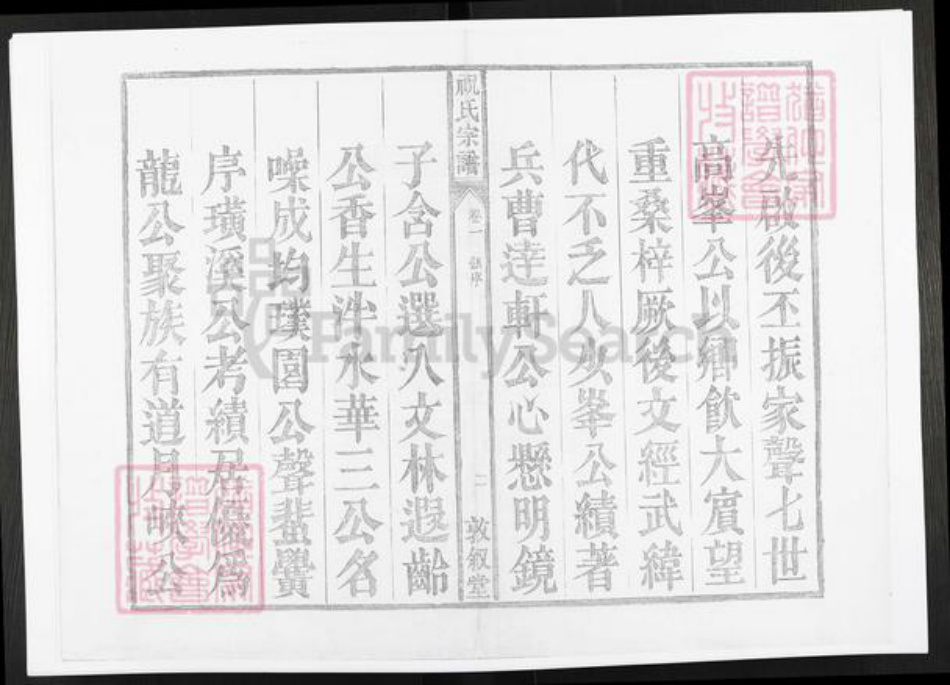 先啟後丕振家聲七世
高峯公以鄉飲大賓望
重桑梓厥後文經武緯
代不乏人次峯公績著
兵曹逹軒公心懸明鏡
祝氏宗譜
卷一
二
敦叙堂
子含公選入文林遐齡
公香生泮水華三公名
噪成均璞園公聲蜚黌
序璜溪公考績居優為
龍公聚族有道月峽公
FamilySearch